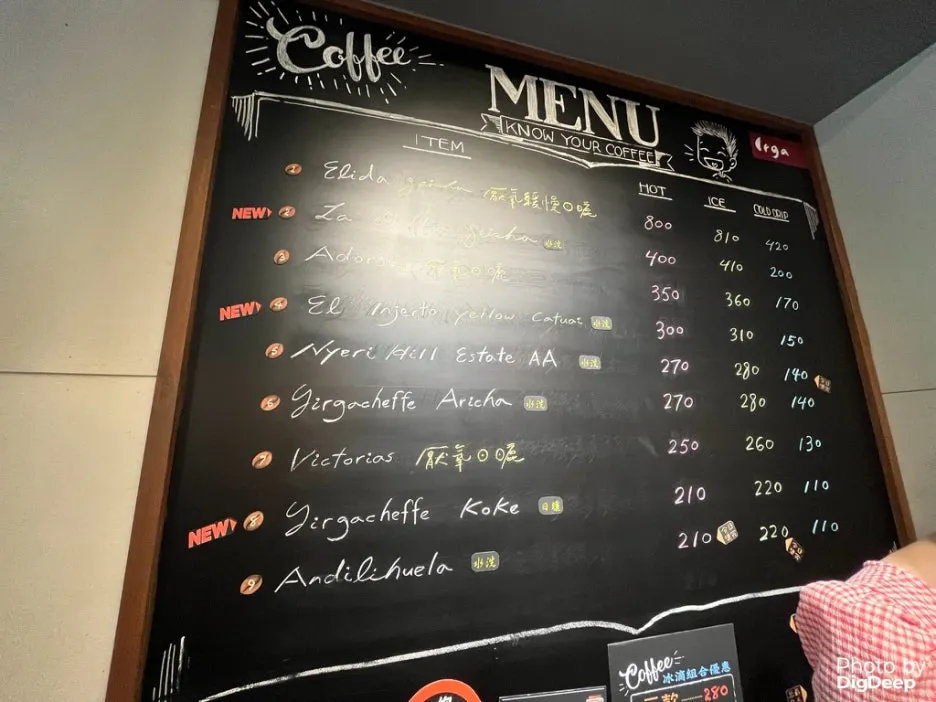 Coffee
MENU
KNOW YOUR COFFEE
ITEM HOT ICE COLD DRIP
1 Elida 厭氧緩慢日曬 800 810 420
NEW 2 La 水洗 400 410 200
3 厭氧日曬 350 360 170
NEW 4 El Injerto yellow Catuai 水洗 300 310 150
5 Nyeri Hill Estate AA 水洗 270 280 140
6 Yirgacheffe Aricha 水洗 270 280 140
7 Victorias 厭氧日曬 250 260 130
NEW 8 Yirgacheffe Koke 日曬 210 220 110
9 Andilihuela 水洗 210 220 110
Coffee
冰滴組合優惠
280
Photo by
DigDeep